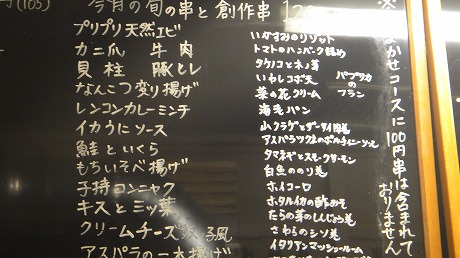 (105)
今月の旬の串と創作串
プリプリ天然エビ
カニ爪 牛肉
貝柱 豚ヒレ
なんこつ変り揚げ
レンコンカレーミンチ
イカうにソース
鮭といくら
もちいそべ揚げ
子持コンニャク
キスと三ッ葉
クリームチーズ 風
アスパラの一本揚げ
いかすみのリゾット
トマトのハンバーグ詰め
タケノコと木ノ芽
いわしコボ天
菜の花クリーム
パプリカのフラン
海老パン
山クラゲとザーサイ肉巻
アスパラツナのポルチーニソース
タマネギとスモークサーモン
白魚ののり巻
ホイコーロ
ホタルイカの酢みそ
たらの芽のしんじょう巻
さわらのシソ巻
イタリアンマッシュルーム
まかせコースに100円串は含まれておりません